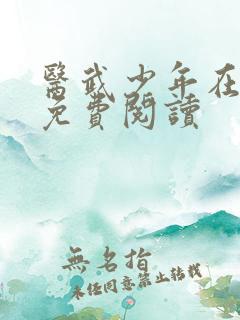 醫武少年在
免費閱讀
無名指
未经同意禁止转载